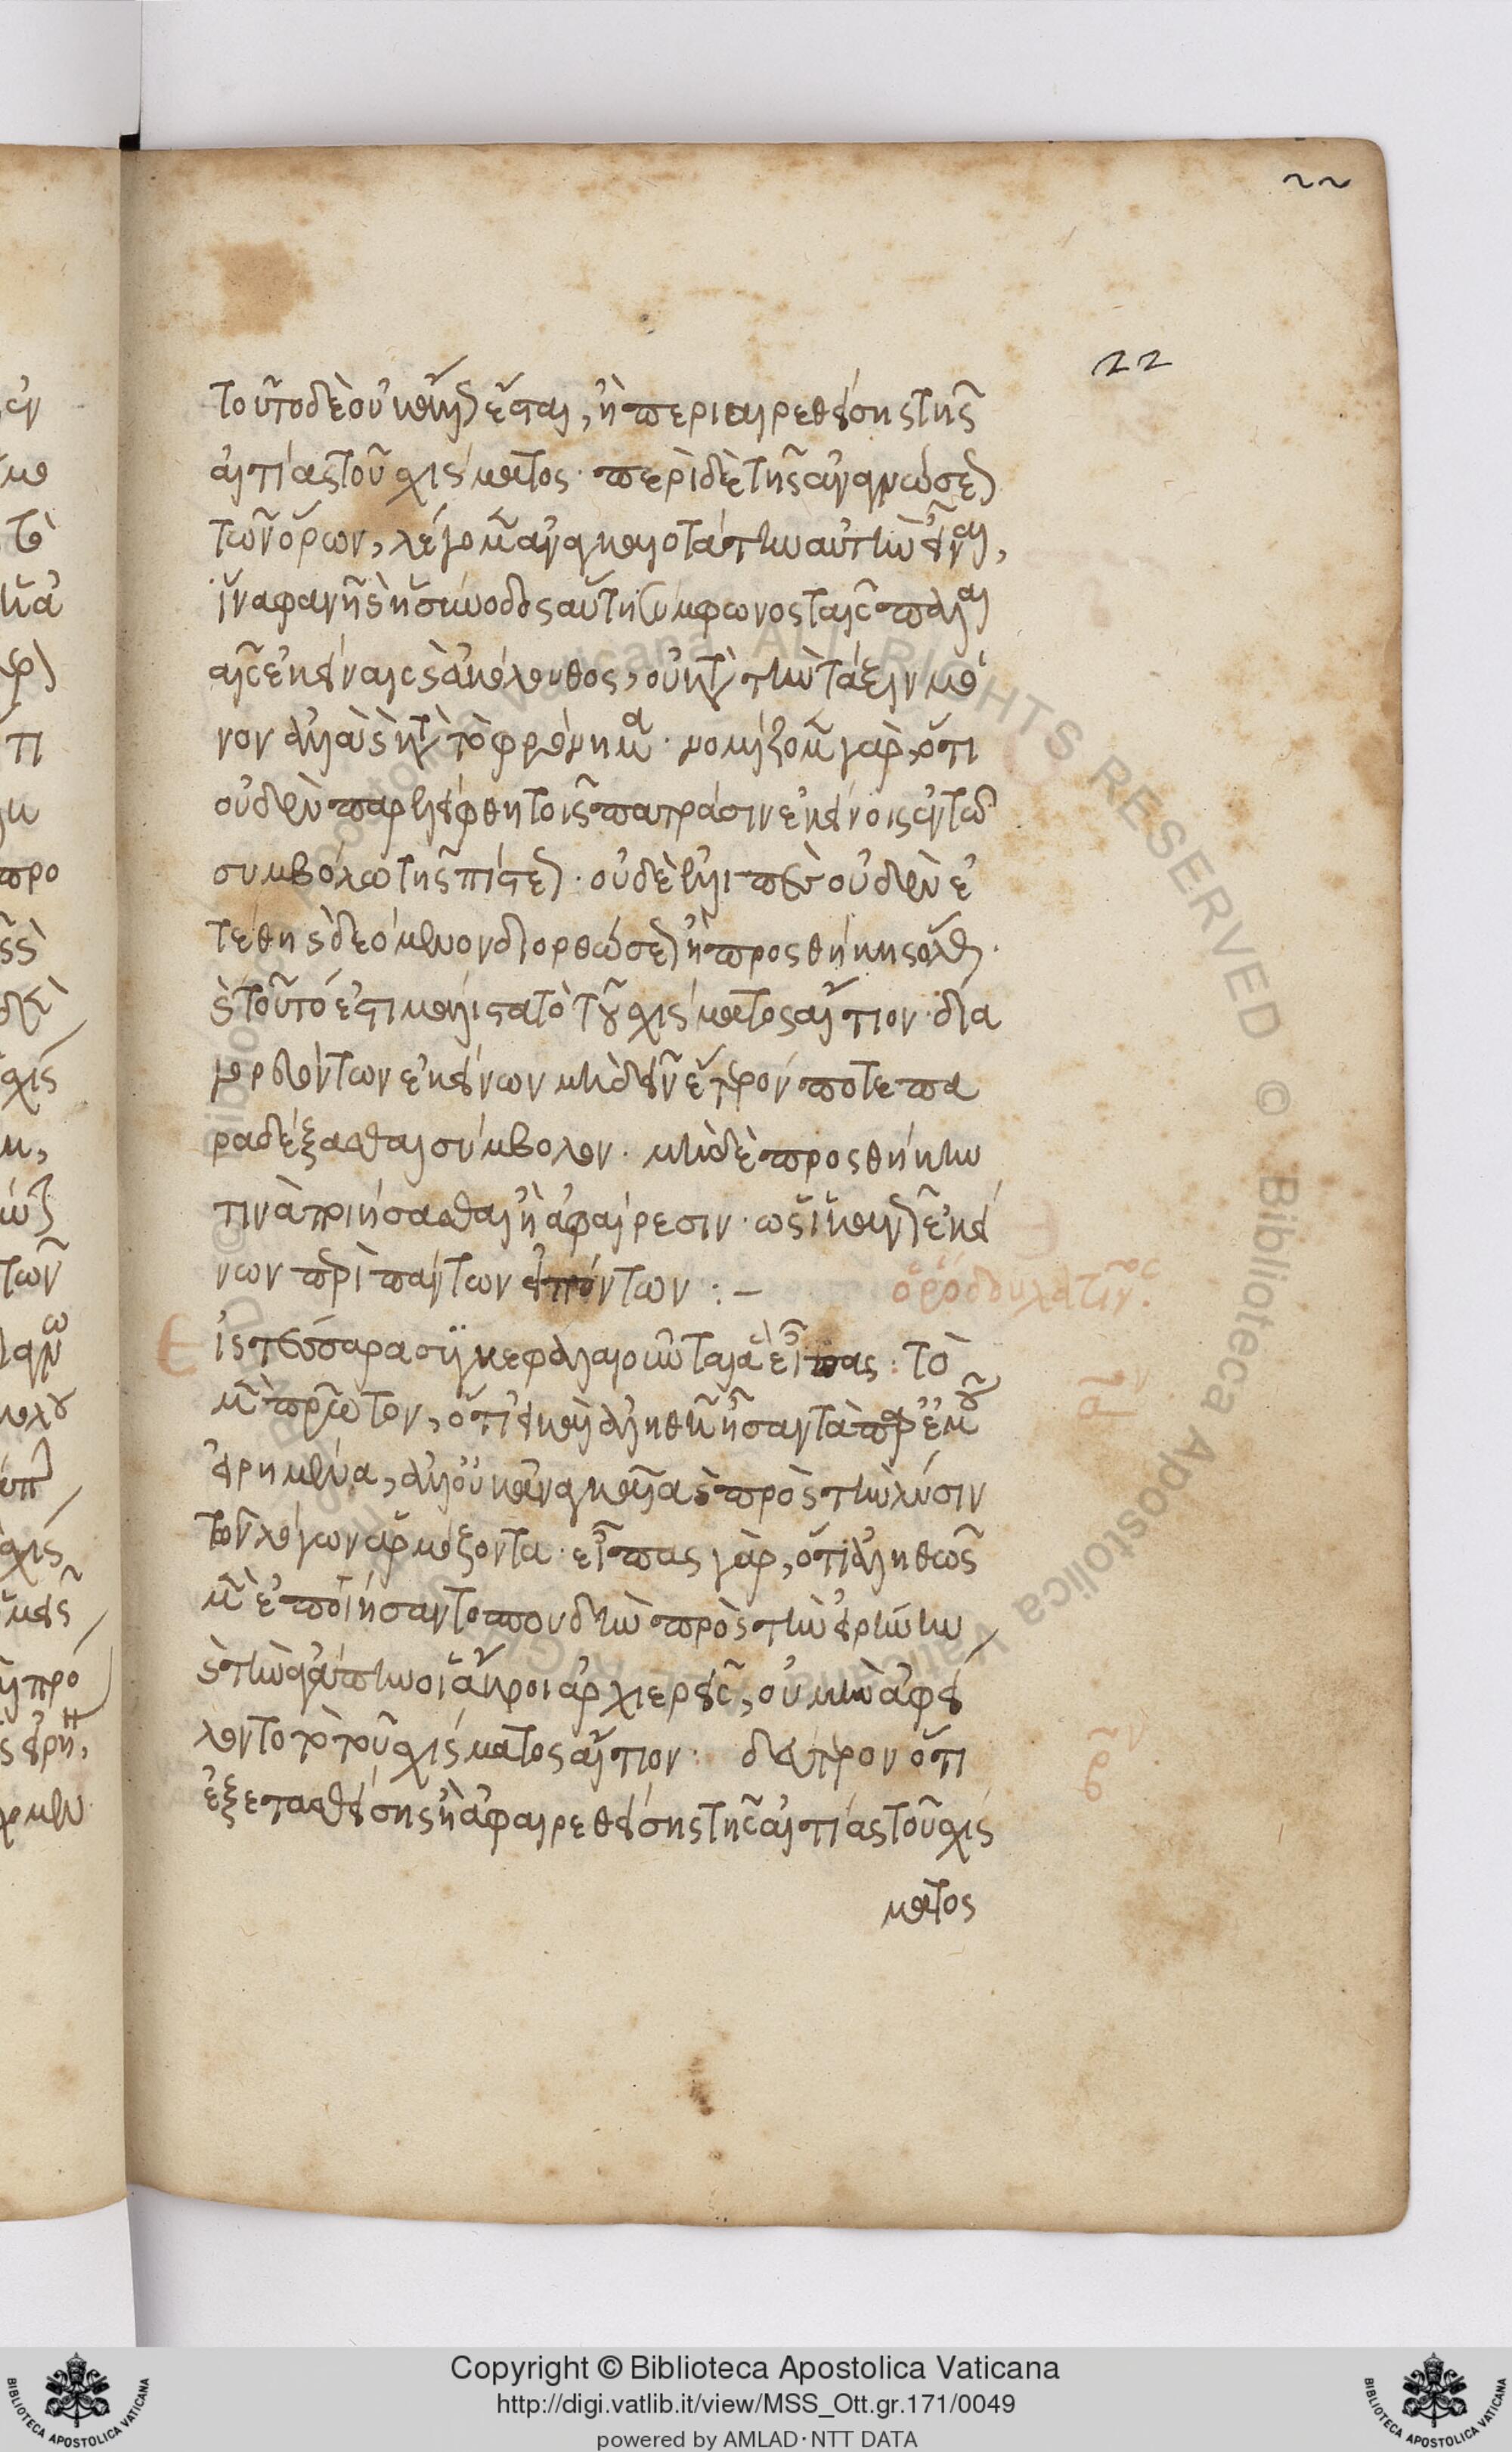 22
22
τοῦτο δὲ οὐκ ἄλλως ἔσται, ἢ περιαιρεθείσης τῆς
αἰτίας τοῦ σχίσματος· περὶ δὲ τῆς ἀναγνώσεως
τῶν ὅρων, λέγομεν ἀναγκαιοτάτην αὐτὴν εἶναι,
ἵνα φανῇ καὶ ἡ σύνοδος αὕτη σύμφωνος ταῖς παλαι
αῖς ἐκείναις καὶ ἀκόλουθος, οὐ κατὰ τὴν τάξιν μό
νον ἀλλὰ καὶ κατὰ τὸ φρόνημα· νομίζομεν γὰρ, ὅτι
οὐδὲν παρελείφθη τοῖς πατράσιν ἐκείνοις ἐν τῶ
συμβόλω τῆς πίστεως· οὐδὲ ἐλλιπὲς οὐδὲν ἐ
τέθη καὶ δεόμενον διορθώσεως ἢ προσθήκης ὅλως·
καὶ τοῦτό ἐστι μάλιστα τὸ τοῦ σχίσματος αἴτιον· δια
μηδὲν ἕτερόν ποτε πα
ραδέξασθαι σύμβολον· μηδὲ προσθήκην
τινὰ ποιήσασθαι ἢ ἀφαίρεσιν· ἐκεί
νων περὶ πάντων εἰπόντων :–
ὁ ῥόδου λατῖνος·
Εἰς τέσσαρα συγκεφαλαιοῦται ἃ εἶπας : τὸ
μὲν πρῶτον, ὅτι εἰ καὶ ἀληθῆ ἦσαν τὰ παρ' ἐμοῦ
εἰρημένα, ἀλλ' οὐκ ἀναγκαῖα καὶ πρὸς τὴν λύσιν
τῶν λόγων ἁρμόζοντα· εἶπας γὰρ, ὅτι ἀληθῶς
μὲν ἐποιήσαντο σπουδὴν πρὸς τὴν εἰρήνην
καὶ τὴν ἀγάπην οἱ ἄκροι ἀρχιερεῖς, οὐ μὴν ἀφεί
λοντο τὸ τοῦ σχίσματος αἴτιον· δεύτερον ὅτι
ἐξετασθείσης ἢ ἀφαιρεθείσης τῆς αἰτίας τοῦ σχίσ
ματος
Copyright © Biblioteca Apostolica Vaticana
http://digi.vatlib.it/view/MSS_Ott.gr.171/0049
powered by AMLAD·NTT DATA